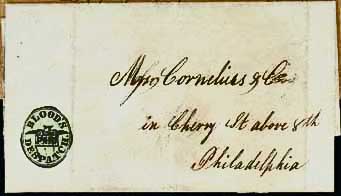 Messrs Cornelius & Co
in Cherry St above 8th
Philadelphia
BLOOD'S
DESPATCH